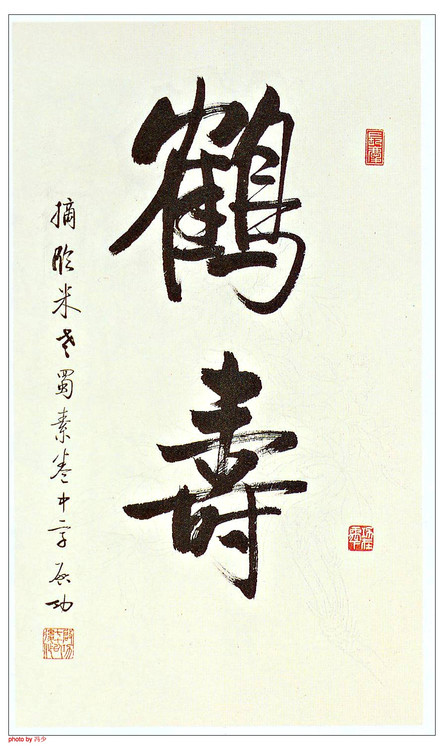 鶴
壽
摘臨米老蜀素卷中字 啟功
photo by 冯少